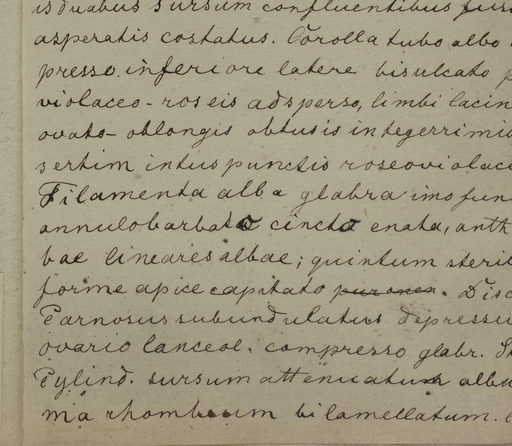 is duabus sursum confluentibus
asperatis costatus. Corolla tubo albo
presso inferiore latere bisulcato p
violaceo-roseis adsperso, limbi lacin
ovato-oblongis obtusis integerrimi
sertim intus punctis roseoviolace
Filamenta alba glabra imo fun
annulo barbato cincto enata, anth
bae lineares albae; quintum steril
forme apice capitato . Disc
Carnosus subundulatus depressu
ovario lanceol. compresso glabr. St
Cylind. sursum attenuatum albu
ma rhombeum bilamellatum.